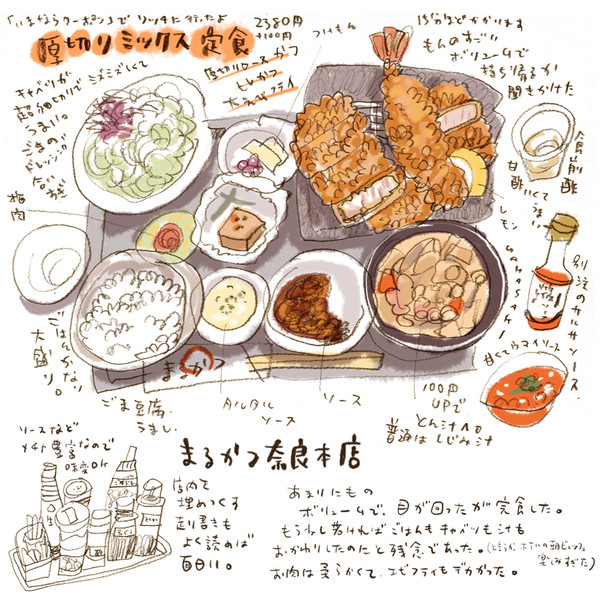 「いまならクーポン」で リッチに行ったよ
厚切りミックス定食
2380円
+100円
厚切りロースかつ
ヒレかつ
大えびフライ
つけもの
15分ほどかかります
ものすごい
ボリュームで
持ち帰るか
聞きかけた
キャベツが
超細切りで
うまい。
ごまの
ドレッシング
合う
梅肉
食前酢
甘酢
うまい
レモン
別注の
ソース
甘くてうまいソース
ごはんがなり
大盛り。
まるかつ
ごま豆腐
うまし
タルタル
ソース
ソース
100円
UPで
とん汁へ
普通はしじみ汁
ソースなど
豊富なので
味変OK
まるかつ奈良本店
店内を
埋めつくす
貼り書きも
よく読めば
面白い。
あまりにもの
ボリュームで、目が回ったが完食した。
もう少し若ければごはんもキャベツも汁も
おかわりしたのにと残念であった。(どうも ホテルの朝ビュッフェ
楽しみすぎた)
お肉は柔らかくて、エビフライもデカかった。